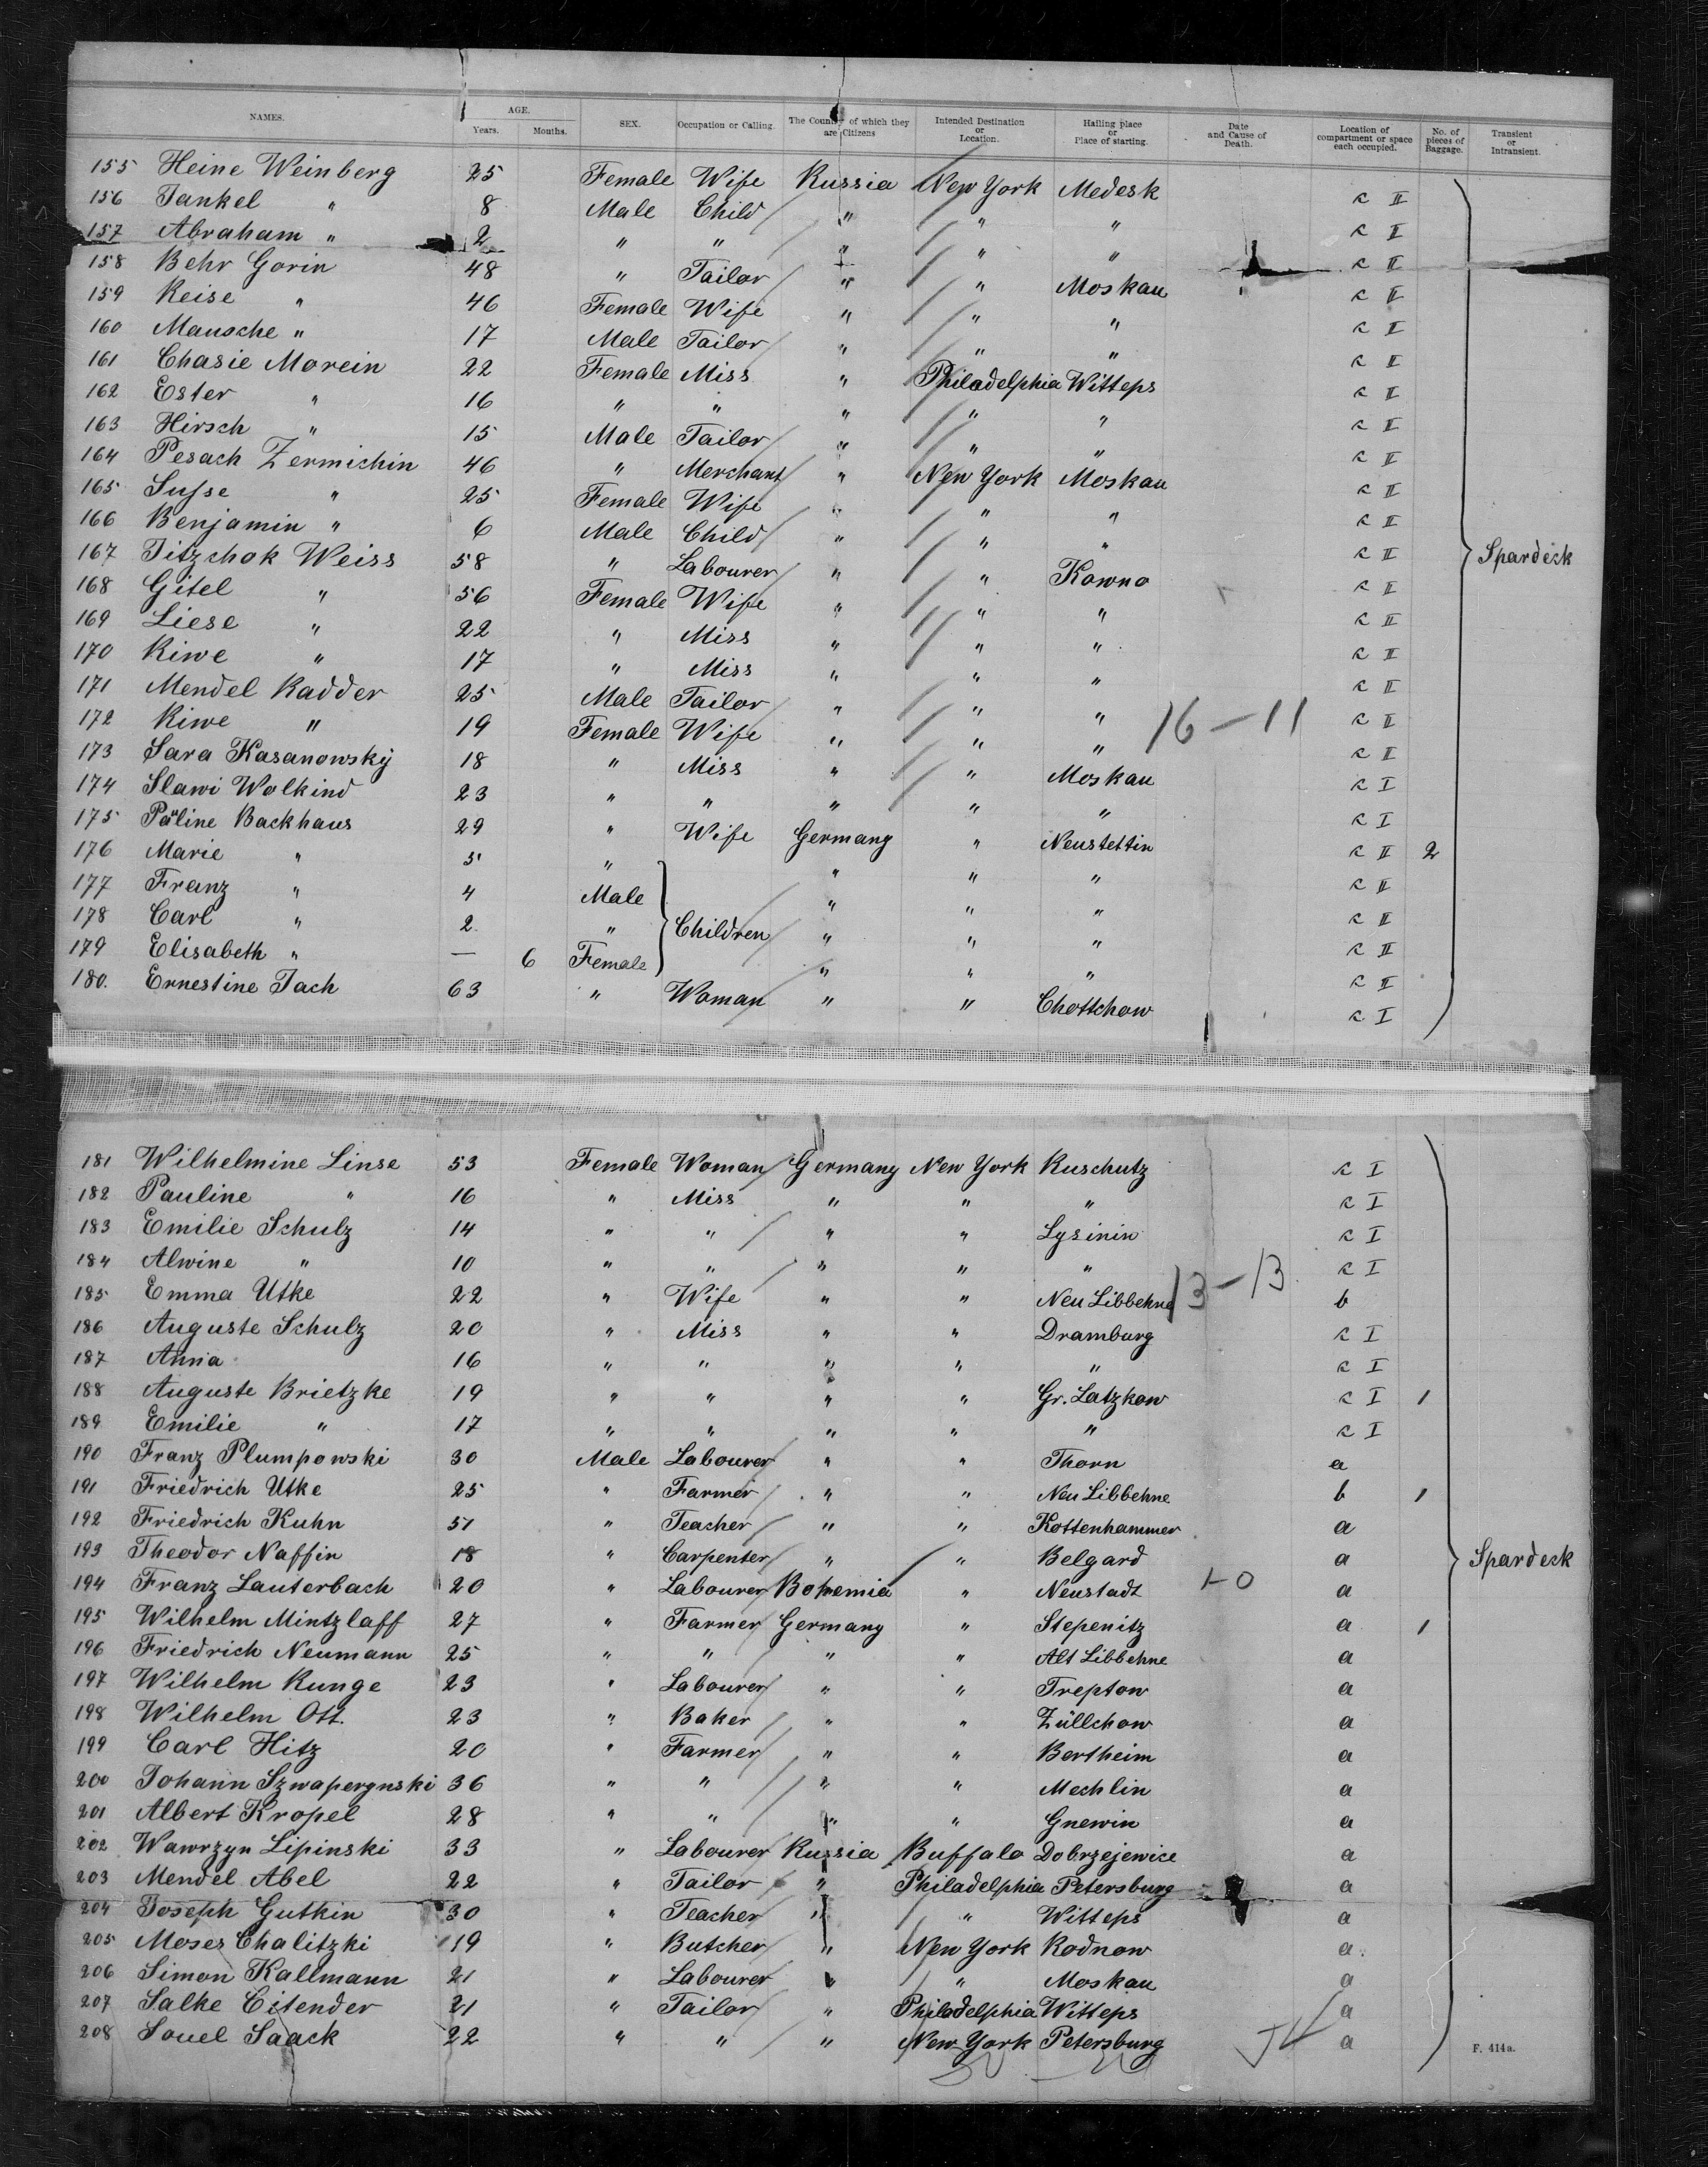 NAMES. AGE. Years. Months. SEX. Occupation or Calling. The Country of which they are Citizens Intended Destination or Location. Hailing place or Place of starting. Date and Cause of Death. Location of compartment or space each occupied. No. of pieces of Baggage. Transient or Intransient.
155 Heine Weinberg 25 Female Wife Russia New York Medesk c II
156 Jankel " 8 Male Child " " " c II
157 Abraham " 2 " " " " " c II
158 Behr Gorin 48 " Tailor " " Moskau c II
159 Reise " 46 Female Wife " " " c II
160 Mausche " 17 Male Tailor " " " c II
161 Chasie Morein 22 Female Miss " Philadelphia Witteps c II
162 Ester " 16 " " " " " c II
163 Hirsch " 15 Male Tailor " " " c II
164 Pesach Zermichin 46 " Merchant " New York Moskau c II
165 Susse " 25 Female Wife " " " c II
166 Benjamin " 6 Male Child " " " c II
167 Jitzchok Weiss 58 " Labourer " " Kowno c II Spardeck
168 Gitel " 56 Female Wife " " " c II
169 Liese " 22 " Miss " " " c II
170 Riwe " 17 " Miss " " " c II
171 Mendel Kadder 25 Male Tailor " " " c II
172 Riwe " 19 Female Wife " " " 16-11 c II
173 Sara Kasanowsky 18 " Miss " " Moskau c I
174 Slawi Wolkind 23 " " " " " c I
175 Pauline Backhaus 29 " Wife Germany " Neustettin c II 2
176 Marie " 5 " " " " c II
177 Franz " 4 Male " " " c II
178 Carl " 2 " Children " " " c II
179 Elisabeth " — 6 Female " " " c II
180. Ernestine Jach 63 " Woman " " Chottschow c I
181 Wilhelmine Linse 53 Female Woman Germany New York Kuschutz c I
182 Pauline " 16 " Miss " " " c I
183 Emilie Schulz 14 " " " " Lysinin c I
184 Alwine " 10 " " " " " c I
185 Emma Utke 22 " Wife " " Neu Libbehne 13-13 b
186 Auguste Schulz 20 " Miss " " Dramburg c I
187 Anna 16 " " " " " c I
188 Auguste Brietzke 19 " " " " Gr. Latzkow c I 1
189 Emilie " 17 " " " " " c I
190 Franz Plumpowski 30 Male Labourer " " Thorn a
191 Friedrich Utke 25 " Farmer " " Neu Libbehne b 1
192 Friedrich Kuhn 51 " Teacher " " Kottenhammer a
193 Theodor Naffin 18 " Carpenter " " Belgard a Spardeck
194 Franz Lauterbach 20 " Labourer Bohemia " Neustadt 1-0 a
195 Wilhelm Mintzlaff 27 " Farmer Germany " Stepenitz a 1
196 Friedrich Neumann 25 " " " " Alt Libbehne a
197 Wilhelm Runge 23 " Labourer " " Treptow a
198 Wilhelm Ott. 23 " Baker " " Züllchow a
199 Carl Hitz 20 " Farmer " " Bertheim a
200 Johann Szwapergnski 36 " " " " Mechlin a
201 Albert Kropel 28 " " " " Gnewin a
202 Wawrzyn Lipinski 33 " Labourer Russia Buffalo Dobrzejewice a
203 Mendel Abel 22 " Tailor " Philadelphia Petersburg a
204 Joseph Gutkin 30 " Teacher " " Witteps a
205 Moses Chalitzki 19 " Butcher " New York Rodnow a
206 Simon Kallmann 21 " Labourer " " Moskau a
207 Salke Citender 21 " Tailor " Philadelphia Witteps a
208 Souel Saack 22 " " " New York Petersburg a
F. 414a.